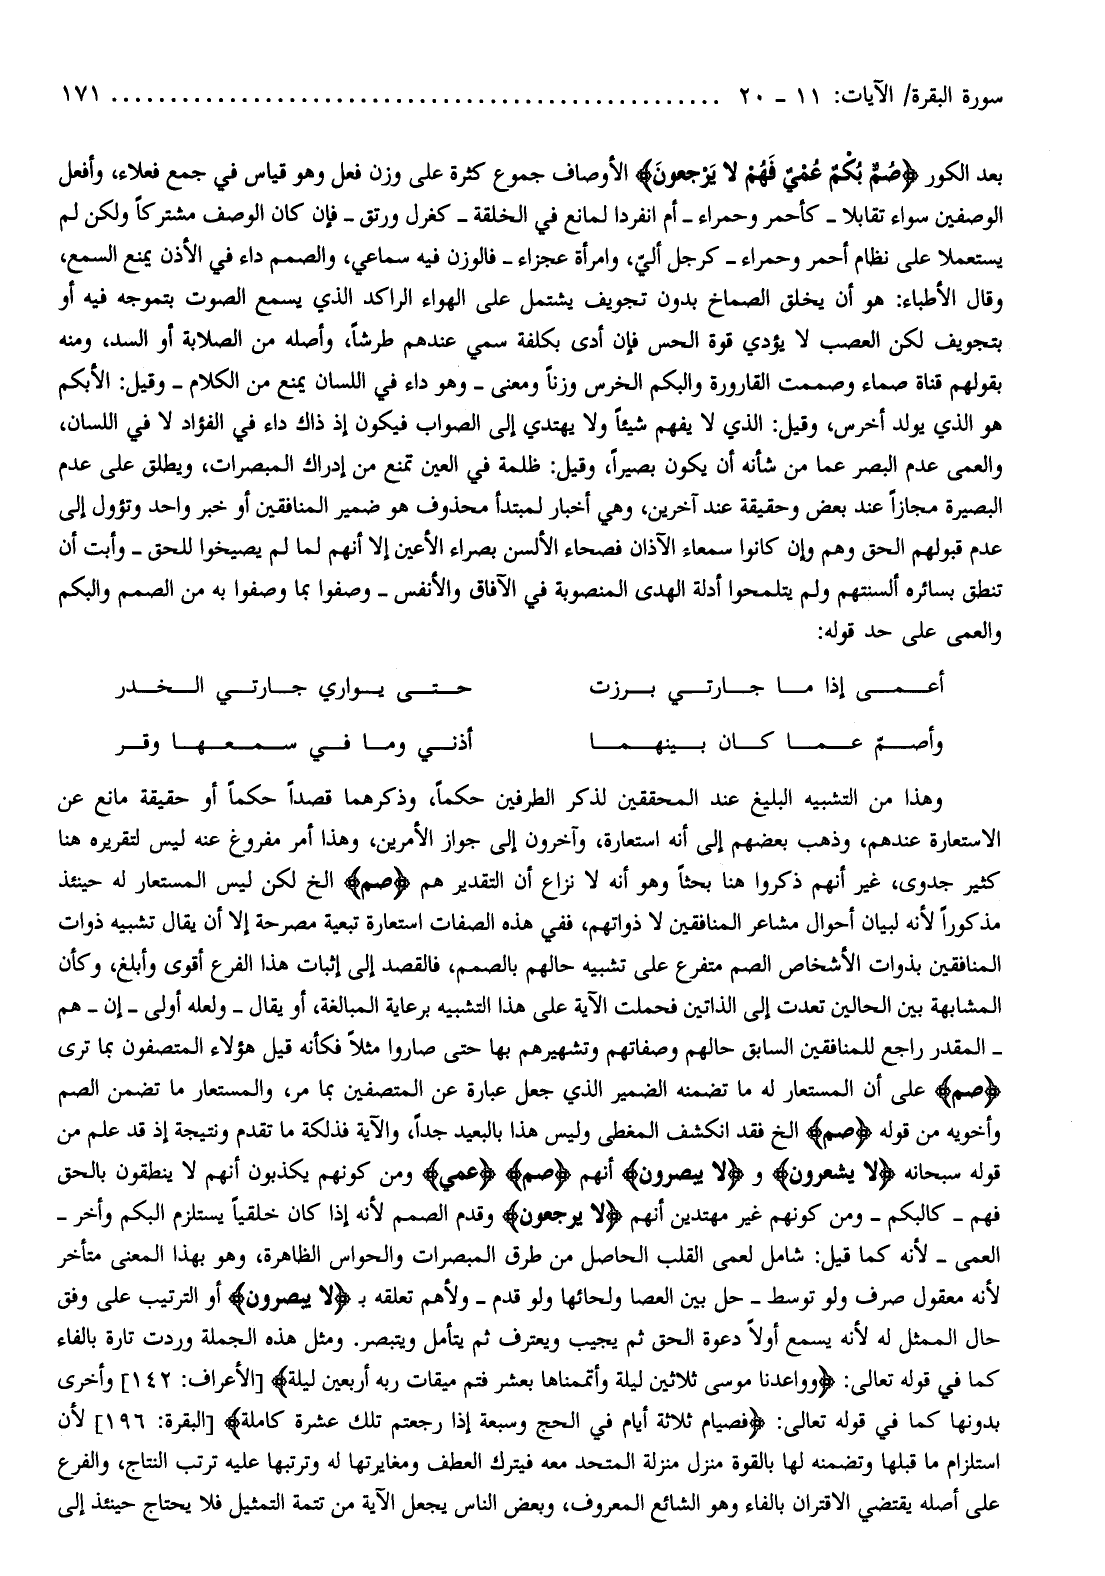 سورة البقرة/ الآيات: ١١ ـ ٢٠ ................................................... ١٧١
بعد الكور ﴿صُمٌّ بُكْمٌ عُمْيٌ فَهُمْ لا يَرْجعونَ﴾ الأوصاف جموع كثرة على وزن فعل وهو قياس في جمع فعلاء، وأفعل
الوصفين سواء تقابلا ـ كأحمر وحمراء ـ أم انفردا لمانع في الخلقة ـ كغرل ورتق ـ فإن كان الوصف مشتركاً ولكن لم
يستعملا على نظام أحمر وحمراء ـ كرجل أليّ، وامرأة عجزاء ـ فالوزن فيه سماعي، والصمم داء في الأذن يمنع السمع،
وقال الأطباء: هو أن يخلق الصماخ بدون تجويف يشتمل على الهواء الراكد الذي يسمع الصوت بتموجه فيه أو
بتجويف لكن العصب لا يؤدي قوة الحس فإن أدى بكلفة سمي عندهم طرشاً، وأصله من الصلابة أو السد، ومنه
بقولهم قناة صماء وصممت القارورة والبكم الخرس وزناً ومعنى ـ وهو داء في اللسان يمنع من الكلام ـ وقيل: الأبكم
هو الذي يولد أخرس، وقيل: الذي لا يفهم شيئاً ولا يهتدي إلى الصواب فيكون إذ ذاك داء في الفؤاد لا في اللسان،
والعمى عدم البصر عما من شأنه أن يكون بصيراً، وقيل: ظلمة في العين تمنع من إدراك المبصرات، ويطلق على عدم
البصيرة مجازاً عند بعض وحقيقة عند آخرين، وهي أخبار لمبتدأ محذوف هو ضمير المنافقين أو خبر واحد وتؤول إلى
عدم قبولهم الحق وهم وإن كانوا سمعاء الآذان فصحاء الألسن بصراء الأعين إلا أنهم لما لم يصيخوا للحق ـ وأبت أن
تنطق بسائره ألسنتهم ولم يتلمحوا أدلة الهدى المنصوبة في الآفاق والأنفس ـ وصفوا بما وصفوا به من الصمم والبكم
والعمى على حد قوله:
أعمى إذا ما جارتي برزت حتى يواري جارتي الخدر
وأصمّ عما كان بينهما أذني وما في سمعها وقر
وهذا من التشبيه البليغ عند المحققين لذكر الطرفين حكماً، وذكرهما قصداً حكماً أو حقيقة مانع عن
الاستعارة عندهم، وذهب بعضهم إلى أنه استعارة، وآخرون إلى جواز الأمرين، وهذا أمر مفروغ عنه ليس لتقريره هنا
كثير جدوى، غير أنهم ذكروا هنا بحثاً وهو أنه لا نزاع أن التقدير هم ﴿صم﴾ الخ لكن ليس المستعار له حينئذ
مذكوراً لأنه لبيان أحوال مشاعر المنافقين لا ذواتهم، ففي هذه الصفات استعارة تبعية مصرحة إلا أن يقال تشبيه ذوات
المنافقين بذوات الأشخاص الصم متفرع على تشبيه حالهم بالصمم، فالقصد إلى إثبات هذا الفرع أقوى وأبلغ، وكأن
المشابهة بين الحالين تعدت إلى الذاتين فحملت الآية على هذا التشبيه برعاية المبالغة، أو يقال ـ ولعله أولى ـ إن ـ هم
ـ المقدر راجع للمنافقين السابق حالهم وصفاتهم وتشهيرهم بها حتى صاروا مثلاً فكأنه قيل هؤلاء المتصفون بما ترى
﴿صم﴾ على أن المستعار له ما تضمنه الضمير الذي جعل عبارة عن المتصفين بما مر، والمستعار ما تضمن الصم
وأخويه من قوله ﴿صم﴾ الخ فقد انكشف المغطى وليس هذا بالبعيد جداً، والآية فذلكة ما تقدم ونتيجة إذ قد علم من
قوله سبحانه ﴿لا يشعرون﴾ و ﴿لا يبصرون﴾ أنهم ﴿صم﴾ ﴿عمي﴾ ومن كونهم يكذبون أنهم لا ينطقون بالحق
فهم ـ كالبكم ـ ومن كونهم غير مهتدين أنهم ﴿لا يرجعون﴾ وقدم الصمم لأنه إذا كان خلقياً يستلزم البكم وأخر ـ
العمى ـ لأنه كما قيل: شامل لعمى القلب الحاصل من طرق المبصرات والحواس الظاهرة، وهو بهذا المعنى متأخر
لأنه معقول صرف ولو توسط ـ حل بين العصا ولحائها ولو قدم ـ ولأهم تعلقه بـ ﴿لا يبصرون﴾ أو الترتيب على وفق
حال الممثل له لأنه يسمع أولاً دعوة الحق ثم يجيب ويعترف ثم يتأمل ويتبصر. ومثل هذه الجملة وردت تارة بالفاء
كما في قوله تعالى: ﴿وواعدنا موسى ثلاثين ليلة وأتممناها بعشر فتم ميقات ربه أربعين ليلة﴾ [الأعراف: ١٤٢] وأخرى
بدونها كما في قوله تعالى: ﴿فصيام ثلاثة أيام في الحج وسبعة إذا رجعتم تلك عشرة كاملة﴾ [البقرة: ١٩٦] لأن
استلزام ما قبلها وتضمنه لها بالقوة منزل منزلة المتحد معه فيترك العطف ومغايرتها له وترتبها عليه ترتب النتاج، والفرع
على أصله يقتضي الاقتران بالفاء وهو الشائع المعروف، وبعض الناس يجعل الآية من تتمة التمثيل فلا يحتاج حينئذ إلى